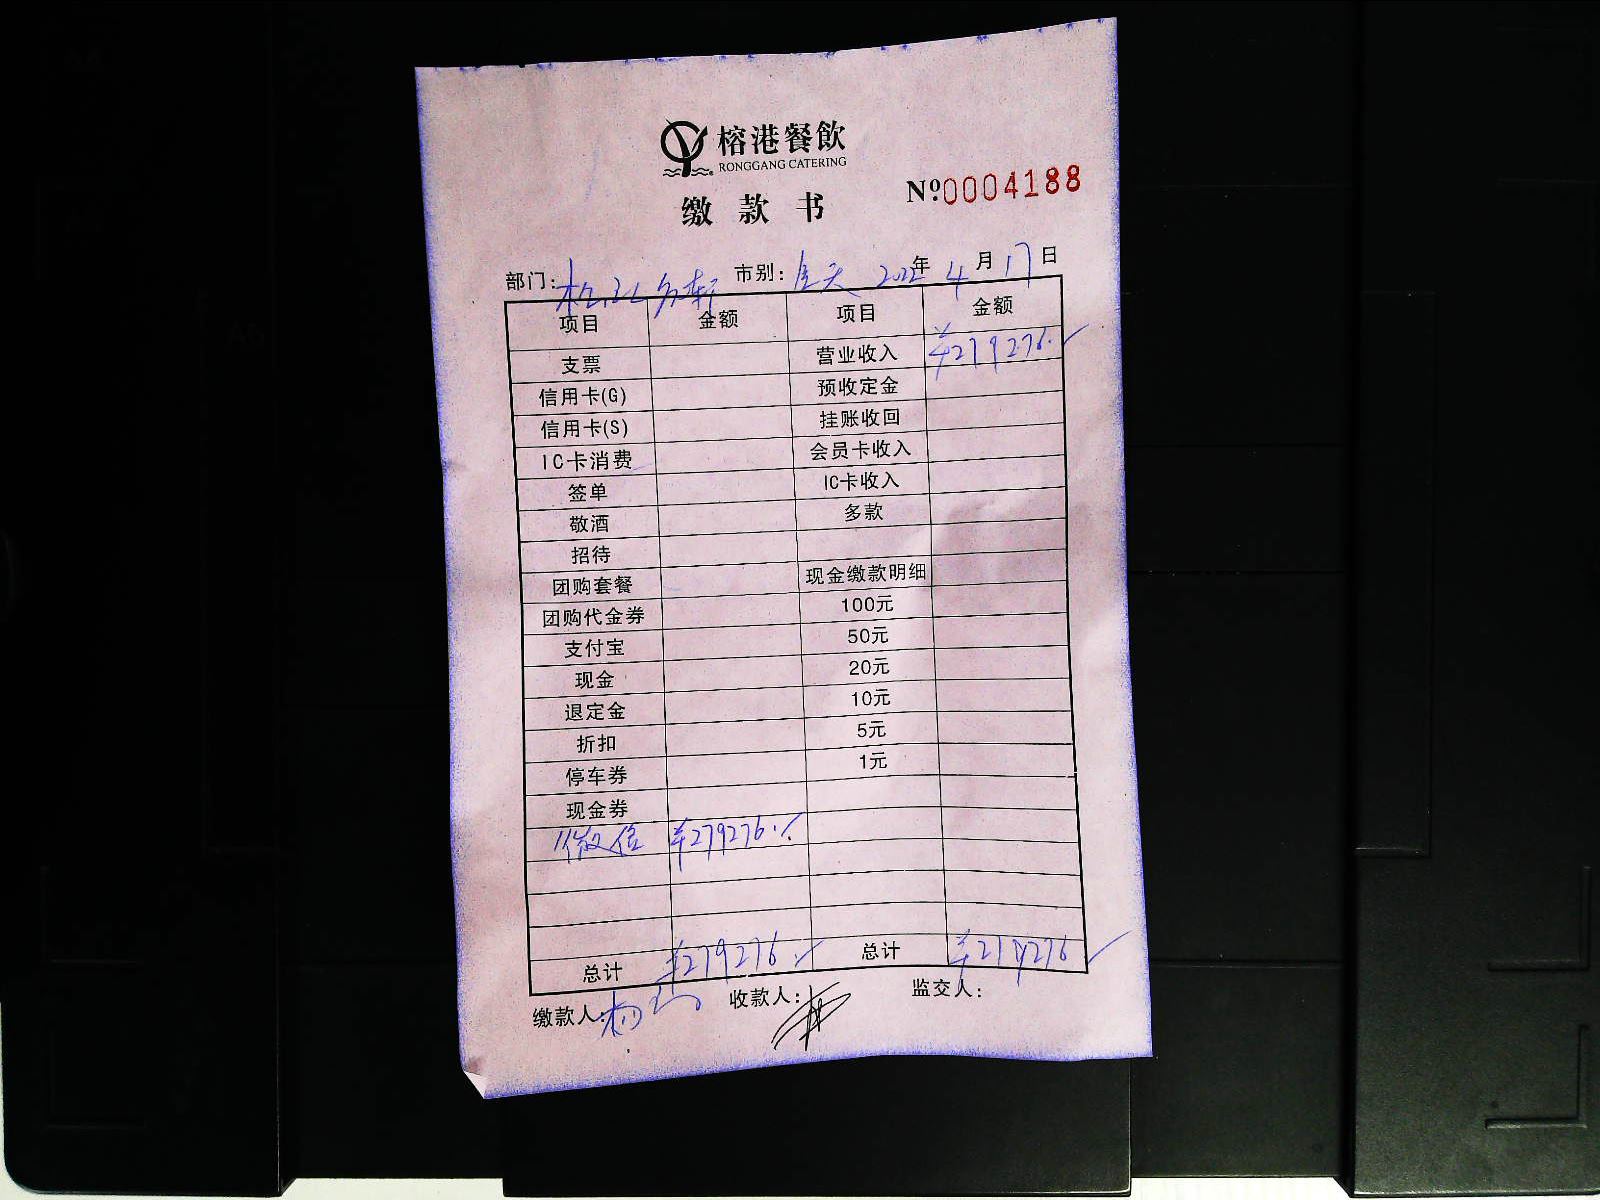 榕港餐飲
RONGGANG CATERING
缴款书
№0004188
部门: 市别: 全天 2022年4月17日
项目 金额 项目 金额
支票 营业收入 ¥279276.
信用卡(G) 预收定金
信用卡(S) 挂账收回
IC卡消费 会员卡收入
签单 IC卡收入
敬酒 多款
招待
团购套餐 现金缴款明细
团购代金券 100元
支付宝 50元
现金 20元
退定金 10元
折扣 5元
停车券 1元
现金券
微信 ¥279276.
总计 ¥279276. 总计 ¥279276
缴款人: 杨 收款人: 监交人: